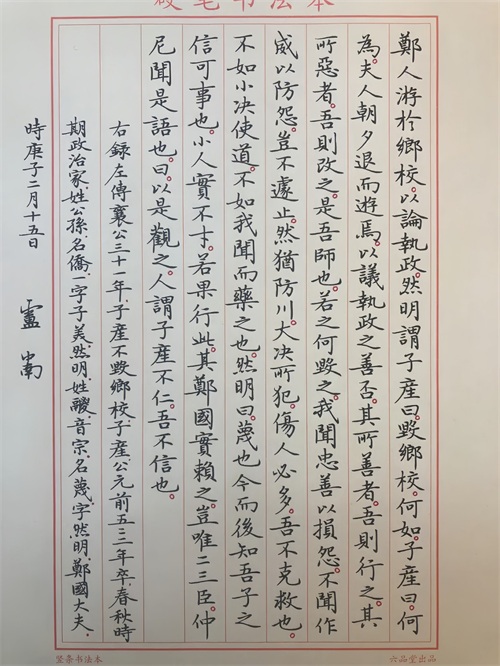 硬笔书法本
鄭人游於鄉校。以論執政。然明謂子產曰。毀鄉校。何如。子產曰。何
為。夫人朝夕退而遊焉。以議執政之善否。其所善者。吾則行之。其
所惡者。吾則改之。是吾師也。若之何毀之。我聞忠善以損怨。不聞作
威以防怨。豈不遽止。然猶防川。大决所犯。傷人必多。吾不克救也。
不如小决使道。不如我聞而藥之也。然明曰。蔑也今而後知吾子之
信可事也。小人實不才。若果行此。其鄭國實賴之。豈唯二三臣。仲
尼聞是語也。曰。以是觀之。人謂子產不仁。吾不信也。
右録左傳襄公三十一年，子產不毀鄉校。子產，公元前五三年卒，春秋時
期政治家，姓公孫，名僑，一字子美。然明，姓鬷，音宗，名蔑，字然明，鄭國大夫。
時庚子二月十五日
竖条书法本
六品堂出品